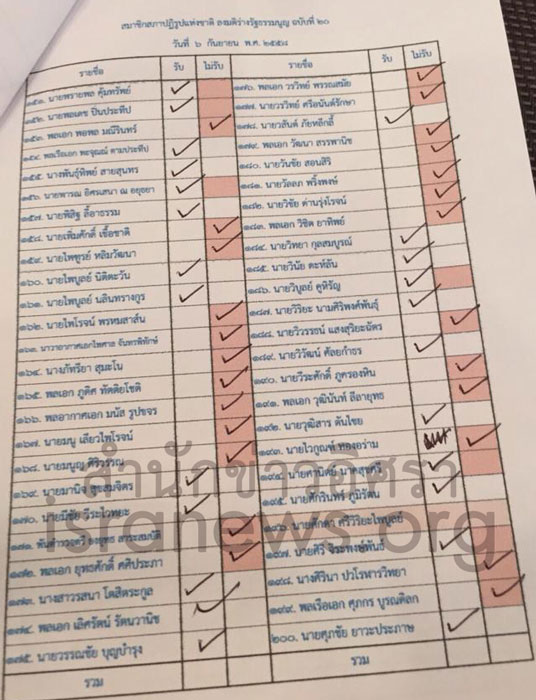 สมาชิกสภาปฏิรูปแห่งชาติ ลงมติร่างรัฐธรรมนูญ ฉบับที่ ๒๐
วันที่ ๖ กันยายน พ.ศ. ๒๕๕๘
รายชื่อ รับ ไม่รับ
๑๕๑. นายพรายพล คุ้มทรัพย์
๑๕๒. นายพลเดช ปิ่นประทีป
๑๕๓. พลเอก พอพล มณีรินทร์
๑๕๔. พลเรือเอก พะจุณณ์ ตามประทีป
๑๕๕. นางพันธุ์ทิพย์ สายสุนทร
๑๕๖. นายพารณ อิศรเสนา ณ อยุธยา
๑๕๗. นายพิสิฐ ลี้อาธรรม
๑๕๘. นายเพิ่มศักดิ์ เชื้อชาติ
๑๕๙. นายไพฑูรย์ หลิมวัฒนา
๑๖๐. นายไพบูลย์ นิติตะวัน
๑๖๑. นายไพบูลย์ นลินทรางกูร
๑๖๒. นายไพโรจน์ พรหมสาส์น
๑๖๓. นาวาอากาศเอกไพศาล จันทรพิทักษ์
๑๖๔. นางภัทรียา สุมะโน
๑๖๕. พลเอก ภูดิศ ทัตติยโชติ
๑๖๖. พลอากาศเอก มนัส รูปขจร
๑๖๗. นายมนู เลียวไพโรจน์
๑๖๘. นายมนูญ ศิริวรรณ
๑๖๙. นายมานิจ สุขสมจิตร
๑๗๐. นายมีชัย วีระไวทยะ
๑๗๑. พันตำรวจตรี ยงยุทธ สาระสมบัติ
๑๗๒. พลเอก ยุทธศักดิ์ ศศิประภา
๑๗๓. นางสาวรสนา โตสิตระกูล
๑๗๔. พลเอก เลิศรัตน์ รัตนวานิช
๑๗๕. นายวรรณชัย บุญบำรุง
รวม
รายชื่อ รับ ไม่รับ
๑๗๖. พลเอก วรวิทย์ พรรณสมัย
๑๗๗. นายวรวิทย์ ศรีอนันต์รักษา
๑๗๘. นายวสันต์ ภัยหลีกลี้
๑๗๙. พลเอก วัฒนา สรรพานิช
๑๘๐. นายวันชัย สอนศิริ
๑๘๑. นายวัลลภ พริ้งพงษ์
๑๘๒. นายวิชัย ด่านรุ่งโรจน์
๑๘๓. พลเอก วิชิต ยาทิพย์
๑๘๔. นายวิทยา กุลสมบูรณ์
๑๘๕. นายวินัย ดะห์ลัน
๑๘๖. นายวิบูลย์ คูหิรัญ
๑๘๗. นายวิริยะ นามศิริพงศ์พันธุ์
๑๘๘. นายวิวรรธน์ แสงสุริยะฉัตร
๑๘๙. นายวิวัฒน์ ศัลยกำธร
๑๙๐. นายวีระศักดิ์ ภูครองหิน
๑๙๑. พลเอก วุฒินันท์ ลีลายุทธ
๑๙๒. นายวุฒิสาร ตันไชย
๑๙๓. นายไวกูณฑ์ ทองอร่าม
๑๙๔. นายศานิตย์ นาคสุขศรี
๑๙๕. นายศักรินทร์ ภูมิรัตน
๑๙๖. นายศักดา ศรีวิริยะไพบูลย์
๑๙๗. นายศิริ จิระพงษ์พันธ์
๑๙๘. นางศิรินา ปวโรฬารวิทยา
๑๙๙. พลเรือเอก ศุภกร บูรณดิลก
๒๐๐. นายศุภชัย ยาวะประภาษ
รวม
สำนักข่าวอิศรา
isranews.org